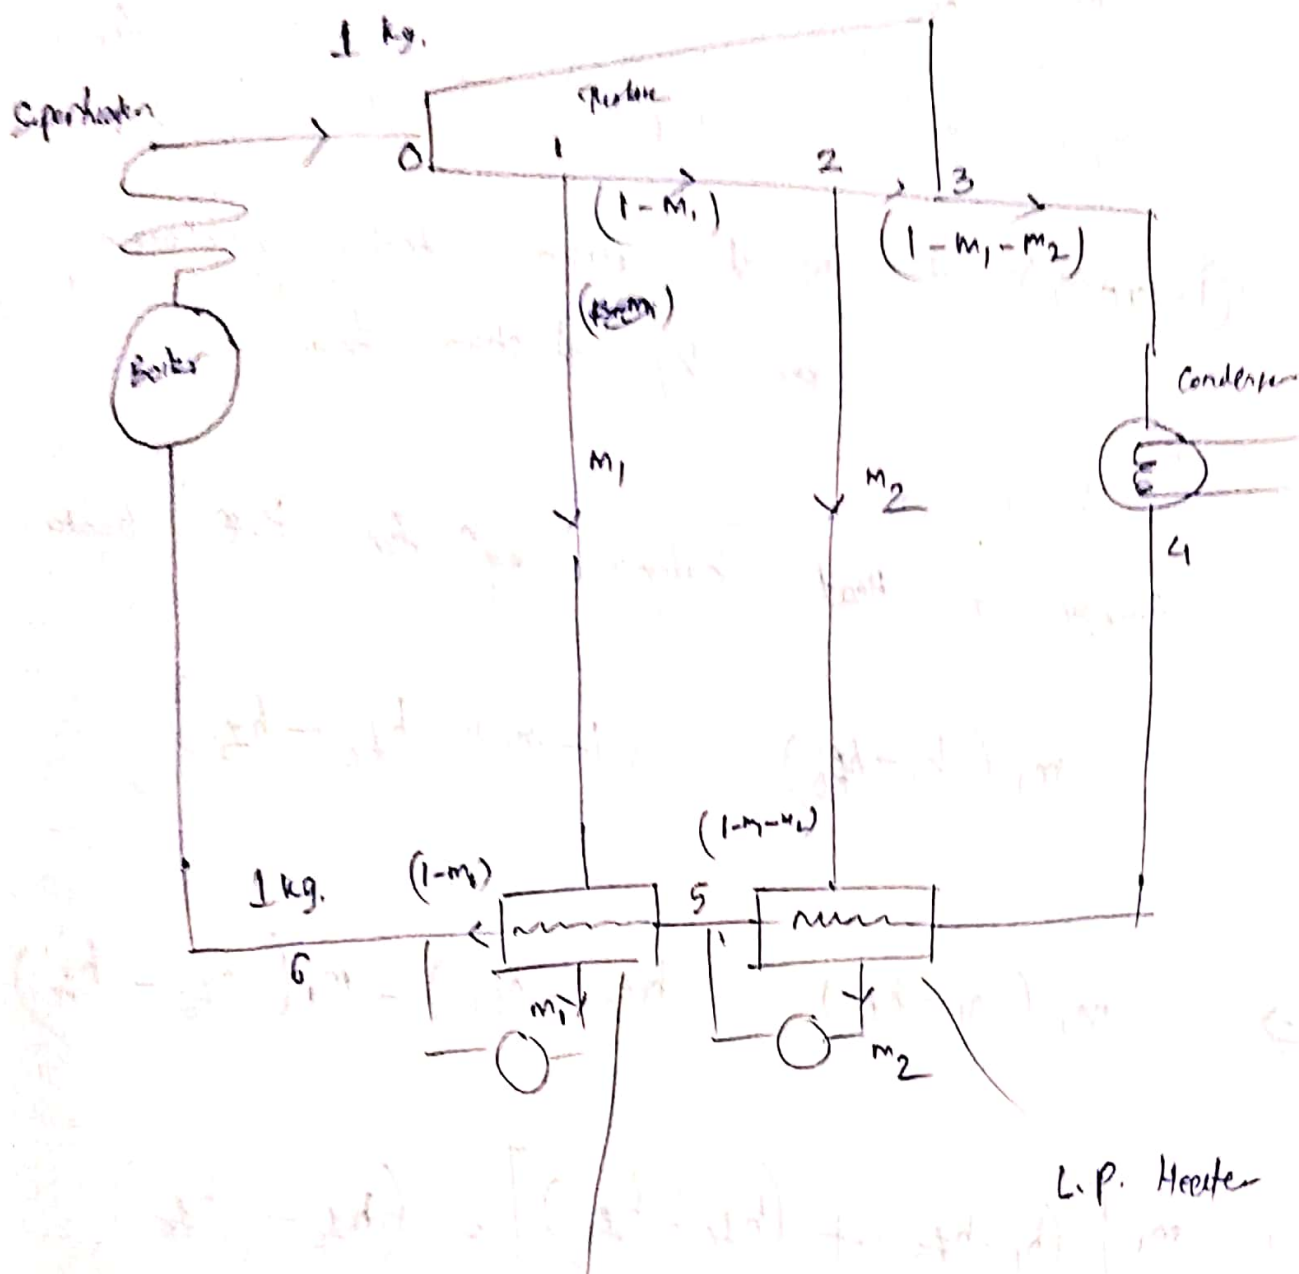 1 kg.
Superheater
Turbine
0
1
2
3
(1-m₁)
(1-m₁-m₂)
Boiler
Condenser
m₁
m₂
4
(1-m₁-m₂)
(1-m₁)
1 kg.
5
6
m₁
m₂
L.P. Heater